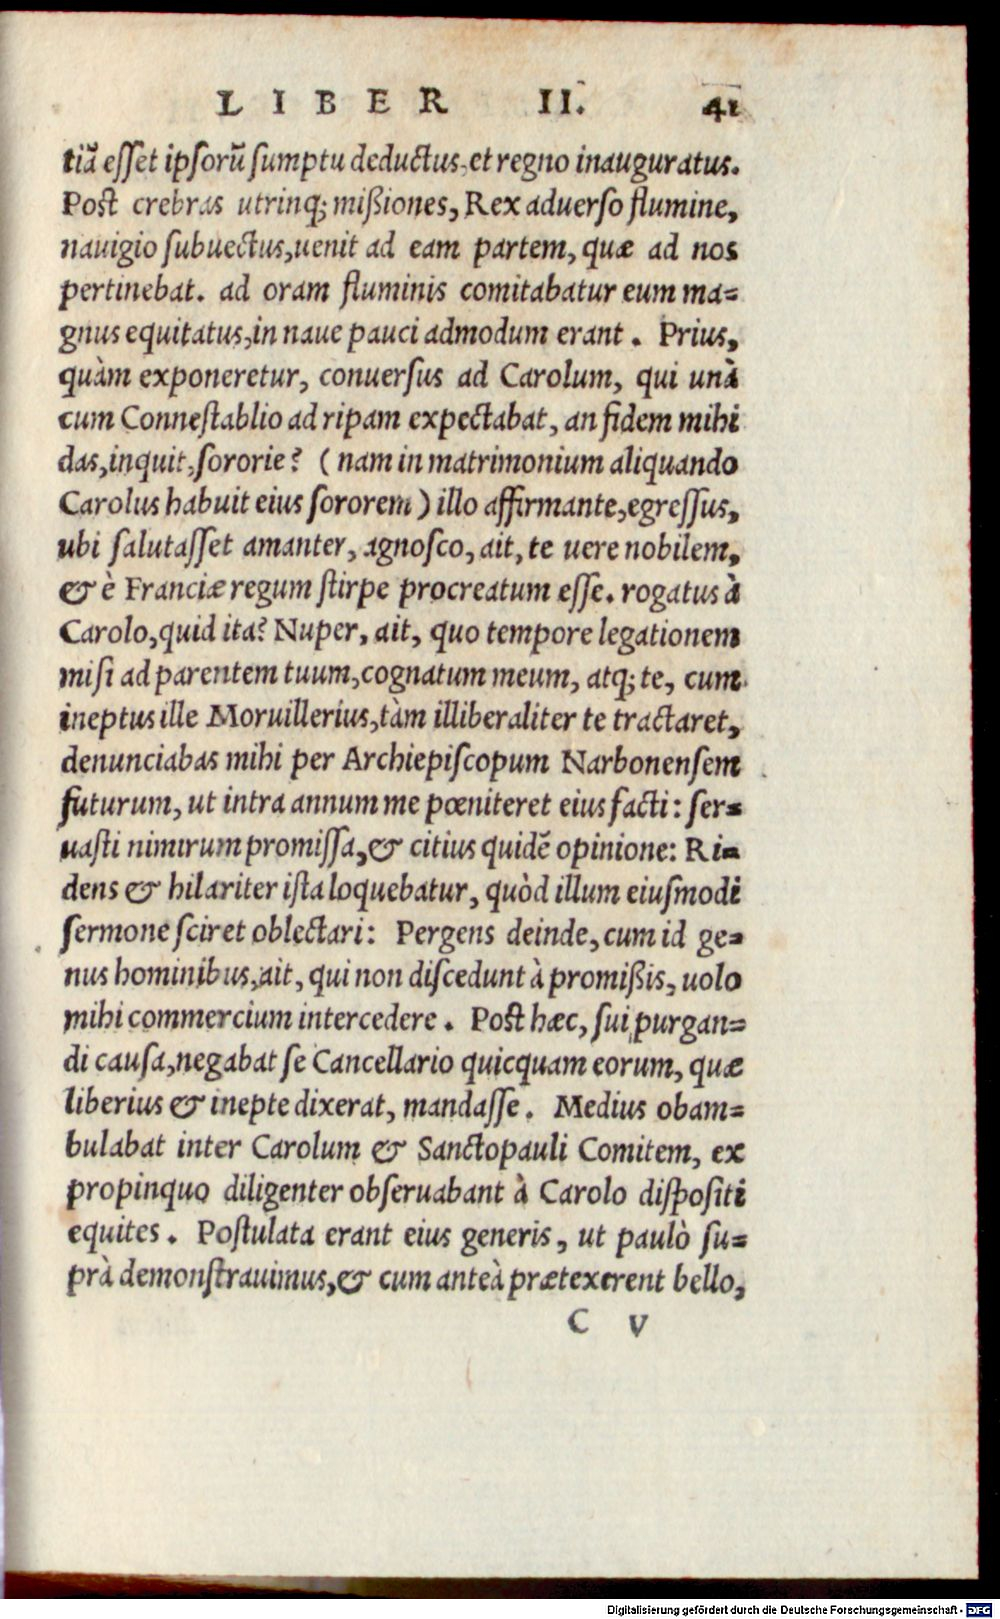 LIBER II. 41
tiã esset ipsorũ sumptu deductus, et regno inauguratus.
Post crebras utrinq; mißiones, Rex aduerso flumine,
nauigio subuectus, uenit ad eam partem, quæ ad nos
pertinebat. ad oram fluminis comitabatur eum ma-
gnus equitatus, in naue pauci admodum erant. Prius,
quàm exponeretur, conuersus ad Carolum, qui unà
cum Connestablio ad ripam expectabat, an fidem mihi
das, inquit, sororie? (nam in matrimonium aliquando
Carolus habuit eius sororem) illo affirmante, egressus,
ubi salutasset amanter, agnosco, ait, te uere nobilem,
& è Franciæ regum stirpe procreatum esse. rogatus à
Carolo, quid ita? Nuper, ait, quo tempore legationem
misi ad parentem tuum, cognatum meum, atq; te, cum
ineptus ille Moruillerius, tàm illiberaliter te tractaret,
denunciabas mihi per Archiepiscopum Narbonensem
futurum, ut intra annum me pœniteret eius facti: ser-
uasti nimirum promissa, & citius quidẽ opinione: Ri-
dens & hilariter ista loquebatur, quòd illum eiusmodi
sermone sciret oblectari: Pergens deinde, cum id ge-
nus hominibus, ait, qui non discedunt à promißis, uolo
mihi commercium intercedere. Post hæc, sui purgan-
di causa, negabat se Cancellario quicquam eorum, quæ
liberius & inepte dixerat, mandasse. Medius obam-
bulabat inter Carolum & Sanctopauli Comitem, ex
propinquo diligenter obseruabant à Carolo dispositi
equites. Postulata erant eius generis, ut paulò su-
prà demonstrauimus, & cum anteà prætexerent bello,
C V
Digitalisierung gefördert durch die Deutsche Forschungsgemeinschaft - DFG